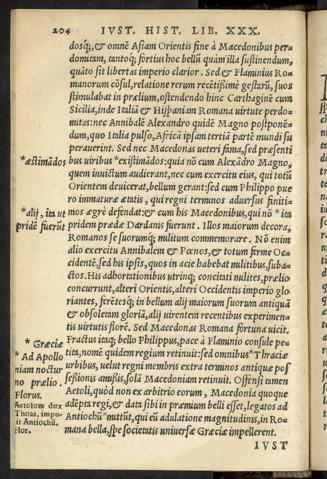 204 IVST. HIST. LIB. XXX.
dosq́;, & omnē Asiam Orientis fine à Macedonibus per
domitam, tantoq́; fortius hoc bellū quàm illa sustinendum,
quāto sit libertas imperio clarior. Sed & Flaminius Ro-
manorum cōsul, relatione rerum recētissimè gestarū, suos
stimulabat in prælium, ostendendo hinc Carthaginē cum
Sicilia, inde Italiā & Hispaniam Romana uirtute perdo-
mitas: nec Annibalē Alexandro quidē Magno postponē-
dum, quo Italia pulso, Africā ipsam tertiā partē mundi su
perauerint. Sed nec Macedonas ueteri fama, sed præsenti
*æstimādos
bus uiribus *existimādos: quia nō cum Alexādro Magno,
quem inuictum audierant, nec cum exercitu eius, qui totū
Orientem deuicerat, bellum gerant: sed cum Philippo pue
ro immaturæ ætatis, qui regni terminos aduersus finiti-
*alij, ita ut
mos ægrè defendat: & cum his Macedonibus, qui nō *ita
pridē fuerūt
pridem prædæ Dardanis fuerunt. Illos maiorum decora,
Romanos se suorumq́; militum commemorare. Nō enim
alio exercitu Annibalem & Pœnos, & totum ferme Oc-
cidentē, sed his ipsis, quos in acie habebat militibus, suba-
ctos. His adhortationibus utrinq; concitati milites, prælio
concurrunt, alteri Orientis, alteri Occidentis imperio glo
riantes, ferētesq́; in bellum alij maiorum suorum antiquā
& obsoletam gloriā, alij uirentem recentibus experimen-
tis uirtutis florē. Sed Macedonas Romana fortuna uicit.
* Græciæ
Fractus itaq́; bello Philippus, pace à Flaminio consule pe-
Ad Apollo
tita, nomē quidem regium retinuit: sed omnibus *Thraciæ
niam noctur
urbibus, uelut regni membris extra terminos antiquæ pos
no prælio.
sessionis amissis, solā Macedoniam retinuit. Offensi tamen
Florus.
Aetoli, quòd non ex arbitrio eorum, Macedonia quoque
Aetolorū dux
adēpta regi, & data sibi in præmium belli esset, legatos ad
Thoas, impu-
Antiochū mittūt, qui eū adulatione magnitudinis, in Ro-
it Antiochū.
mana bella, spe societatis uniuersæ Græciæ impellerent.
Flor.
IVST